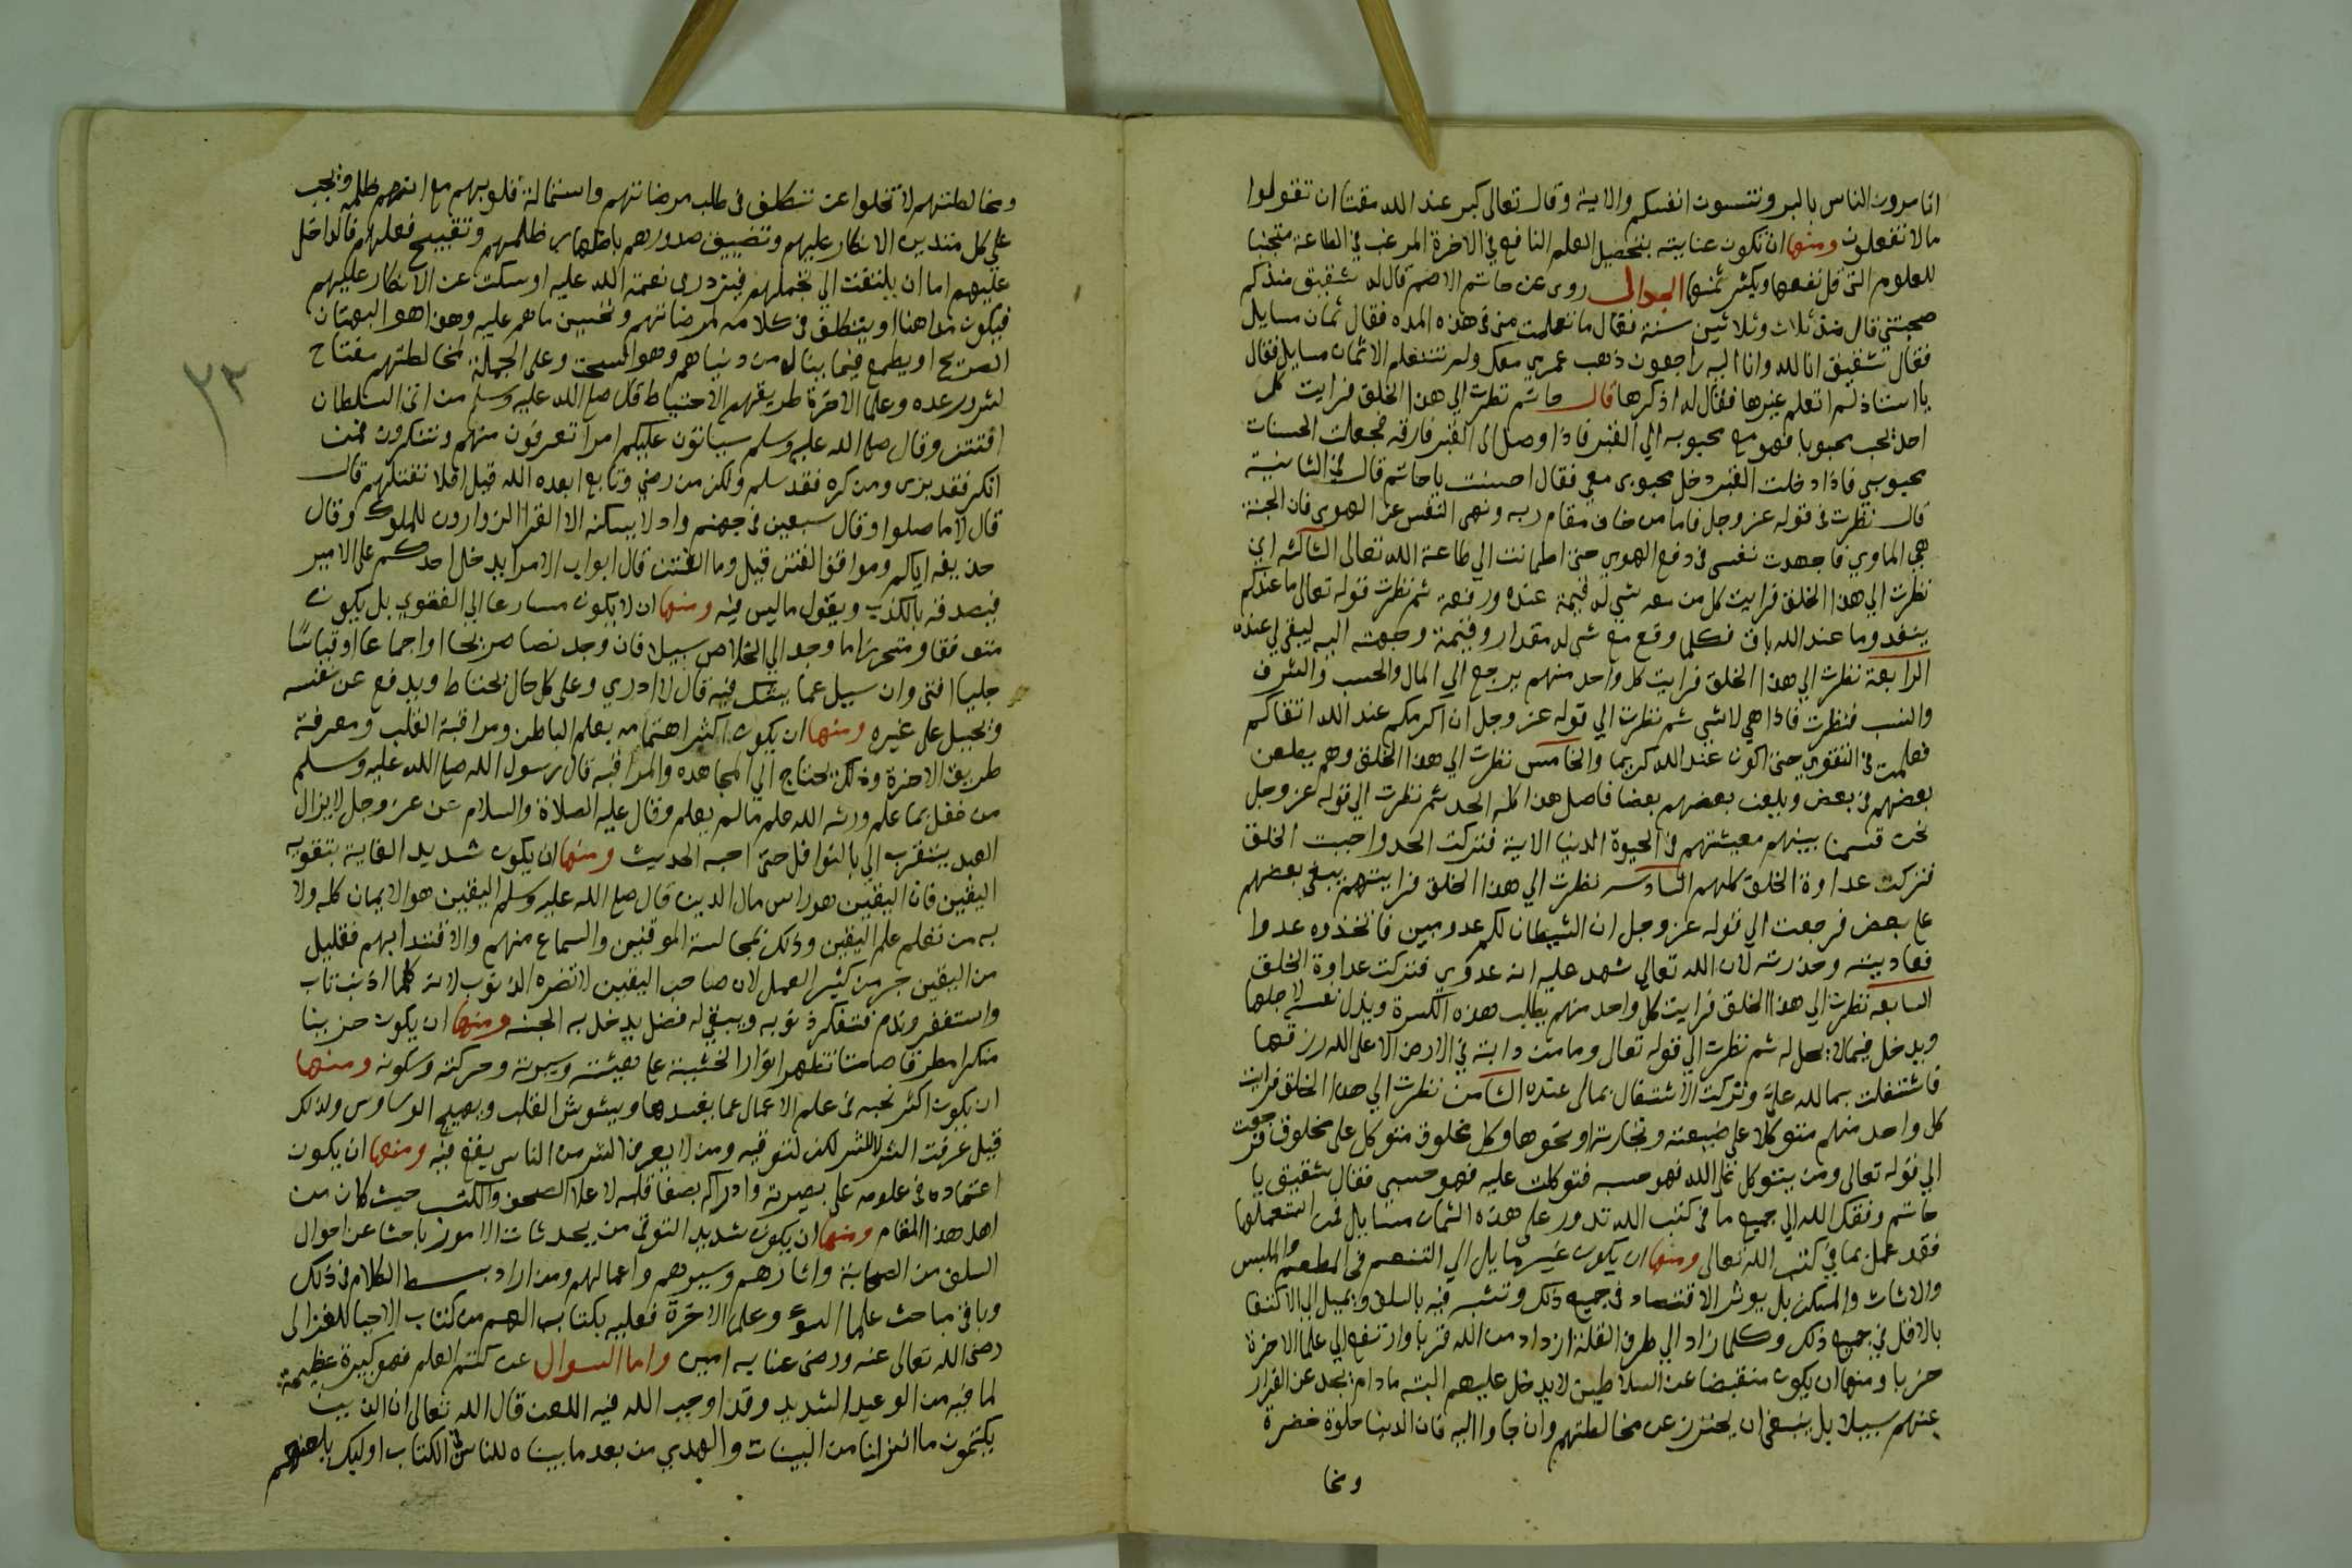 اتامرون الناس بالبر وتنسون انفسكم والاية وقال تعالى كبر عند الله مقتا ان تقولوا
مالا تفعلون ومنها ان تكون عنايته بتحصيل العلم النافع في الاخرة المرغب في الطاعة متجنبا
للعلوم التى قل نفعها ويكثر ثمنها الجدال روى عن حاتم الاصم قال له شقيق منذ كم
صحبتنى قال منذ ثلاث وثلاثين سنة فقال ما تعلمت منى فى هذه المده فقال ثمان مسايل
فقال شقيق انا لله وانا اليه راجعون ذهب عمرى معك ولم تتعلم الا ثمان مسايل فقال
يا استاذ لم اتعلم غيرها فقال له اذكرها قال حاتم نظرت الي هذا الخلق فرايت كل
احد يحب محبوبا فهو مع محبوبه الي القبر فاذا وصل الى القبر فارقه فجعلت الحسنات
محبوبي فاذا دخلت القبر دخل محبوبى معي فقال احسنت يا حاتم قال فى الثانية
قال نظرت فى قوله عز وجل فاما من خاف مقام ربه ونهى النفس عن الهوى فان الجنة
هي الماوي فاجهدت نفسى فى دفع الهوي حتى اطمانت الي طاعة الله تعالى الثالثه اني
نظرت الي هذا الخلق فرايت كل من معه شي له قيمة عنده ورفعه ثم نظرت قوله تعالى ما عندكم
ينفد وما عند الله باق فكلما وقع مع شى له مقدار وقيمة وجهته اليه ليبقى لي عنده
الرابعة نظرت الي هذا الخلق فرايت كل واحد منهم يرجع الي المال والحسب والشرف
والنسب فنظرت فاذا هي لا شي ثم نظرت الي قوله عز وجل ان اكرمكم عند الله اتقاكم
فعلمت فى التقوي حتى اكون عند الله كريما والخامس نظرت الي هذا الخلق وهم يطعن
بعضهم فى بعض ويلعن بعضهم بعضا فاصل هذا كله الحد ثم نظرت الي قوله عز وجل
نحن قسمنا بينهم معيشتهم فى الحيوة الدنيا الاية فتركت الحد واحببت الخلق
فتركت عداوة الخلق كلهم السادسه نظرت الي هذا الخلق فرايتهم يبغى بعضهم
على بعض فرجعت الي قوله عز وجل ان الشيطان لكم عدو مبين فاتخذوه عدوا
فعاديته وحذرته لان الله تعالي شهد عليه انه عدوي فتركت عداوة الخلق
السابعه نظرت الي هذا الخلق فرايت كل واحد منهم يطلب هذه الكسرة ويذل نفسه لاجلها
ويدخل فيما لا يحل له ثم نظرت الي قوله تعالى وما من دابة في الارض الا على الله رزقها
فاشتغلت بما لله علي وتركت الاشتغال بمالى عنده الثامن نظرت الي هذا الخلق فرايت
كل واحد منهم متوكلا علي ضيعته وتجارته او نحوها وكل مخلوق متوكل على مخلوق فرجعت
الي قوله تعالى ومن يتوكل على الله فهو حسبه فتوكلت عليه فهو حسبي فقال شقيق يا
حاتم وفقك الله الي جميع ما فى كتب الله تدور على هذه الثمان مسايل فمن استعملها
فقد عمل بما في كتب الله تعالى ومنها ان يكون غير مايل الي التنعم فى المطعم والملبس
والاثاث والمسكن بل يوثر الاقتصاد فى جميع ذلك وتشبه فيه بالسلف ويميل الي الاكتفا
بالاقل في جميع ذلك وكلما زاد الي طرف القلة ازداد من الله قربا وارتفع الي علما الاخرة
حزبا ومنها ان يكون منقبضا عن السلاطين لا يدخل عليهم البته ما دام يجد عن الفرار
عنهم سبيلا بل ينبغى ان يحترز عن مخالطتهم وان جاوا اليه فان الدنيا حلوة خضرة
ومخا
ومخالطتهم لا تخلوا عن تتكلف فى طلب مرضاتهم واستمالة قلوبهم مع انهم ظلمه ويجب
علي كل متدين الانكار عليهم وتضييق صدورهم باظهار ظلمهم وتقبيح فعلهم فالداخل
عليهم اما ان يلتفت الي تجملهم فيزدرى نعمة الله عليه او يسكت عن الانكار عليهم
فيكون مداهنا او يتكلف فى كلامه لمرضاتهم وتحسين ماهم عليه وهذا هو البهتان
الصريح او يطمع فيما يناله من دنياهم وهو السحت وعلى الجملة مخالطتهم مفتاح
لشرور عده وعلما الاخرة طريقهم الاحتياط قال صلى الله عليه وسلم من اتى السلطان
افتتن وقال صلى الله عليه وسلم سياتون عليكم امرا تعرفون منهم وتنكرون فمن
انكر فقد برى ومن كره فقد سلم ولكن من رضي وتابع ابعده الله قيل افلا نقتلهم قال
قال لا ما صلوا وقال سبعين فى جهنم واد لا يسكنه الا القرا الزوارون للملوك وقال
حذيفه اياكم ومواقف الفتن قيل وما الفتن قال ابواب الامرا يدخل احدكم على الامير
فيصدقه بالكذب ويقول ما ليس فيه ومنها ان لا يكون مسارعا الي الفتوي بل يكون
متوقفا ومتحرزا ما وجد الي الخلاص سبيلا فان وجد نصا صريحا او اجماعا او قياسا
جليا افتى وان سيل عما يشك فيه قال لا ادري وعلى كل حال يحتاط ويدفع عن نفسه
ويحيل على غيره ومنها ان يكون اكثر اهتمامه بعلم الباطن ومراقبة القلب ومعرفة
طريق الاخرة وذلك يحتاج الي المجاهده والمراقبه قال رسول الله صلى الله عليه وسلم
من عمل بما علم ورثه الله علم ما لم يعلم وقال عليه الصلاة والسلام عن عز وجل لا يزال
العبد يتقرب الي بالنوافل حتى احبه الحديث ومنها ان يكون شديد العناية بتقويه
اليقين فان اليقين هو راس مال الدين قال صلى الله عليه وسلم اليقين هو الايمان كله ولا
به من تعلم علم اليقين وذلك بمجالسة الموقنين والسماع منهم والاقتدا بهم فقليل
من اليقين خير من كثير العمل لان صاحب اليقين لا تضره الذنوب لانه كلما اذنب تاب
واستغفر وندم فتتكفر ذنوبه ويبقى له فضل يدخل به الجنه ومنها ان يكون حزينا
منكرا مطرقا صامتا تظهر انوار الخشية على هيئته وسيرته وحركته وسكونه ومنها
ان يكون اكثر بحثه فى علم الاعمال عما يفسدها ويشوش القلب ويهيج الوساوس ولذلك
قيل عرفت الشر لا للشر لكن لتوقيه ومن لا يعرف الشر من الناس يقع فيه ومنها ان يكون
اعتماده فى علومه على بصيرته وادراكه بصفا قلبه لا على الصحف والكتب حيث كان من
اهل هذا المقام ومنها ان يكون شديد التوقى من محدثات الامور باحثا عن احوال
السلف من الصحابة واثارهم وسيرهم واعمالهم ومن اراد بسط الكلام فى ذلك
وباقي مباحث علما السوء وعلما الاخرة فعليه بكتاب العلم من كتاب الاحيا للغزالى
رضى الله تعالى عنه ورضى عنا به امين واما السوال عن كتم العلم فهو كبيرة عظيمة
لما فيه من الوعيد الشديد وقد اوجب الله فيه اللعن قال الله تعالى ان الذين
يكتمون ما انزلنا من البينات والهدي من بعد ما بيناه للناس فى الكتاب اوليك يلعنهم
٣٣